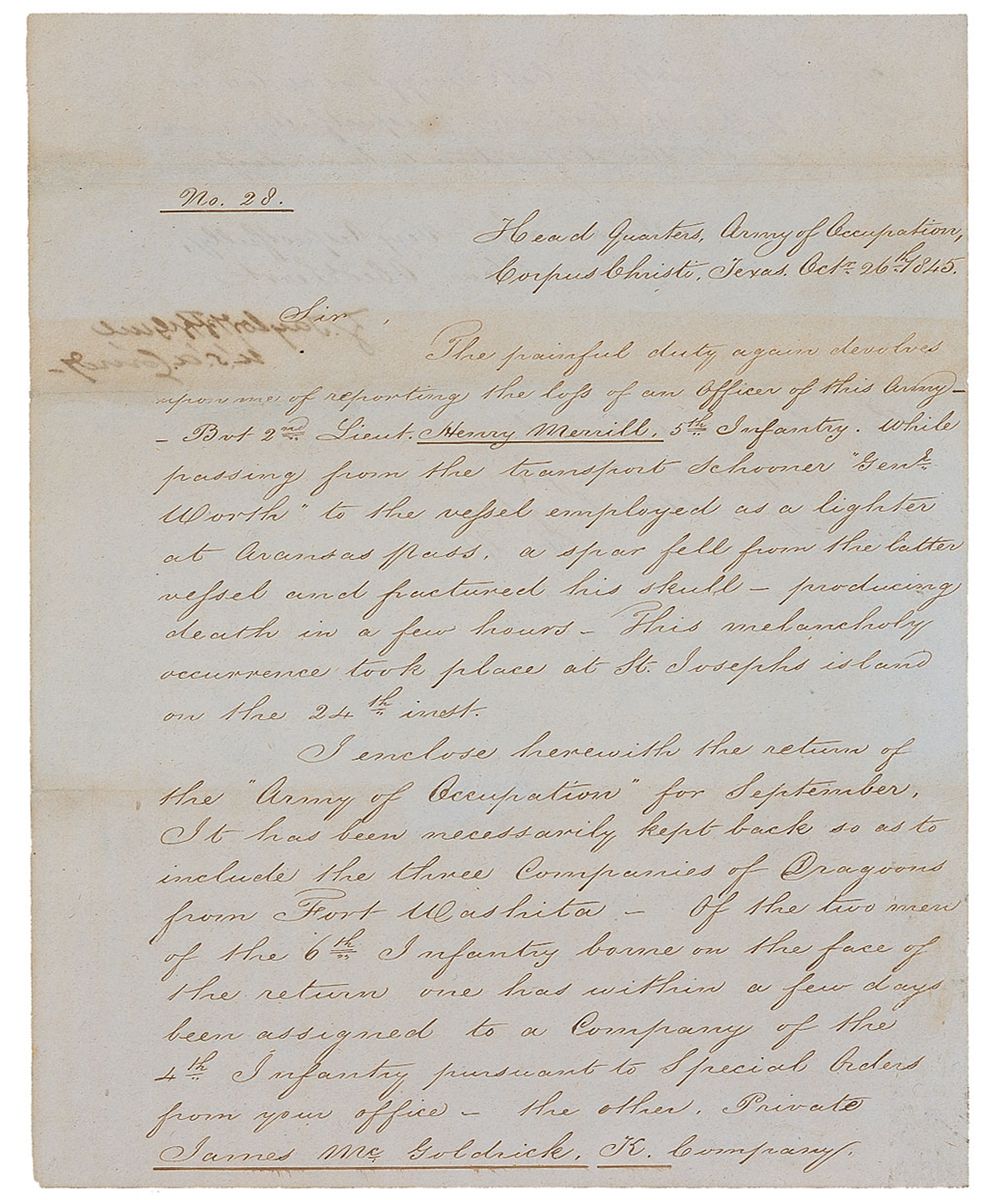 No. 28.
Head Quarters, Army of Occupation,
Corpus Christi, Texas. Octr. 26th 1845.
Sir,
The painful duty again devolves
upon me of reporting the loss of an Officer of this Army –
– Bvt 2nd Lieut. Henry Merrill, 5th Infantry. While
passing from the transport schooner "Genl.
Worth" to the vessel employed as a lighter
at Aransas Pass, a spar fell from the latter
vessel and fractured his skull – producing
death in a few hours – This melancholy
occurrence took place at St. Josephs island
on the 24th inst.
I enclose herewith the return of
the "Army of Occupation" for September.
It has been necessarily kept back so as to
include the three Companies of Dragoons
from Fort Washita – Of the two men
of the 6th Infantry borne on the face of
the return one has within a few days
been assigned to a Company of the
4th Infantry pursuant to Special Orders
from your office – the other, Private
James Mc Goldrick, K. Company,
Z. Taylor
U.S.A. Comdg –